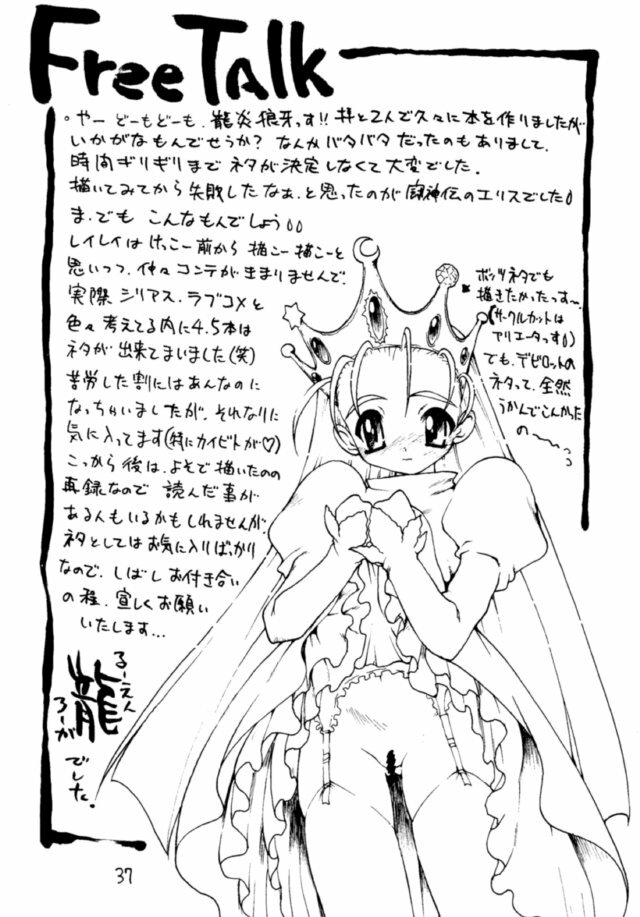 Free Talk
。やー どーもどーも、龍炎狼牙っす!! 拝と2人で久々に本を作りましたが
いかがなもんでせうか? なんかバタバタだったのもありまして、
時間ギリギリまで ネタが決定しなくて大変でした。
描いてみてから失敗したなぁ、と思ったのが 闘神伝のエリスでした
ま、でも こんなもんでしょう
レイレイは けっこー前から 描こー描こーと
思いつつ、仲々コンテがきまりませんで、
実際 シリアス、ラブコメと
色々 考えてる内に 4.5本は
ネタが出来てまいました(笑)
苦労した割にはあんなのに
なっちゃいましたが、それなりに
気に入ってます(特にカイビトが♡)
こっから後は、よそで描いたの
再録なので 読んだ事が
ある人もいるかもしれませんが、
ネタとしてはお気に入りばっかり
なので、しばしお付き合い
の程、宜しくお願い
いたします...
るーえん
龍
ろーが
でした。
ボッツネタでも
描きたかったっす〜、
(サークルカットは
アリエータっす)
でも、デビロットの
ネタって、全然
うかんでこんかった
の〜〜っっ
37